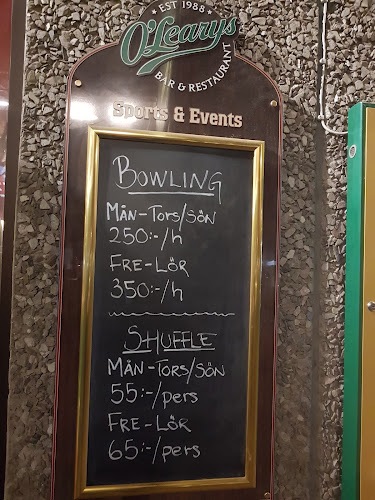 EST 1988
O'Learys
BAR & RESTAURANT
Sports & Events
BOWLING
MÅN-TORS/SÖN
250:-/h
FRE-LÖR
350:-/h
SHUFFLE
MÅN-TORS/SÖN
55:-/pers
FRE-LÖR
65:-/pers